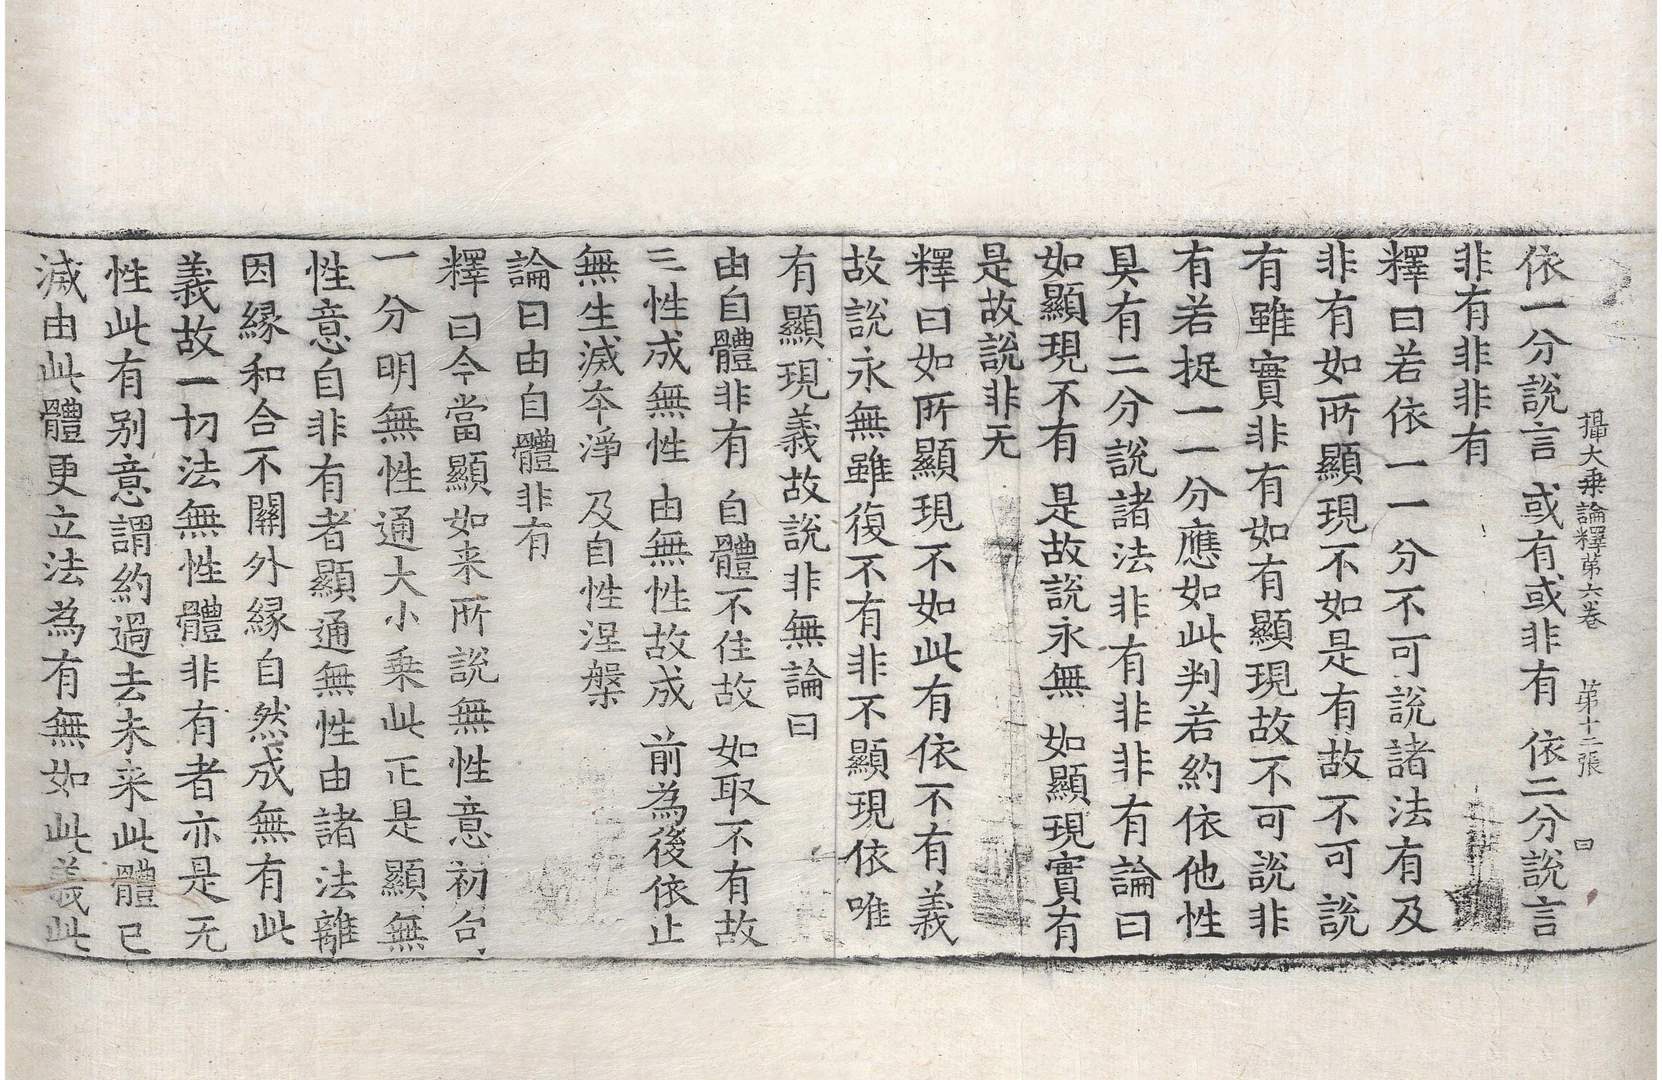 攝大乗論釋第六卷 第十二張 曰
依一分說言 或有或非有 依二分說言
非有非非有
釋曰若依一一分不可說諸法有及
非有如所顯現不如是有故不可說
有雖實非有如有顯現故不可說非
有若捉一一分應如此判若約依他性
具有二分說諸法非有非非有論曰
如顯現不有 是故說永無 如顯現實有
是故說非无
釋曰如所顯現不如此有依不有義
故說永無雖復不有非不顯現依唯
有顯現義故說非無論曰
由自體非有 自體不住故 如取不有故
三性成無性 由無性故成 前為後依止
無生滅夲淨 及自性涅槃
論曰由自體非有
釋曰今當顯如来所說無性意初句
一分明無性通大小乗此正是顯無
性意自非有者顯通無性由諸法離
因縁和合不關外縁自然成無有此
義故一切法無性體非有者亦是无
性此有别意謂約過去未来此體已
滅由此體更立法為有無如此義此